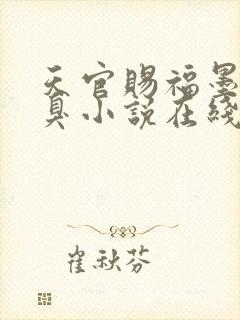 天官賜福墨
臭小說在綫
崔秋芬